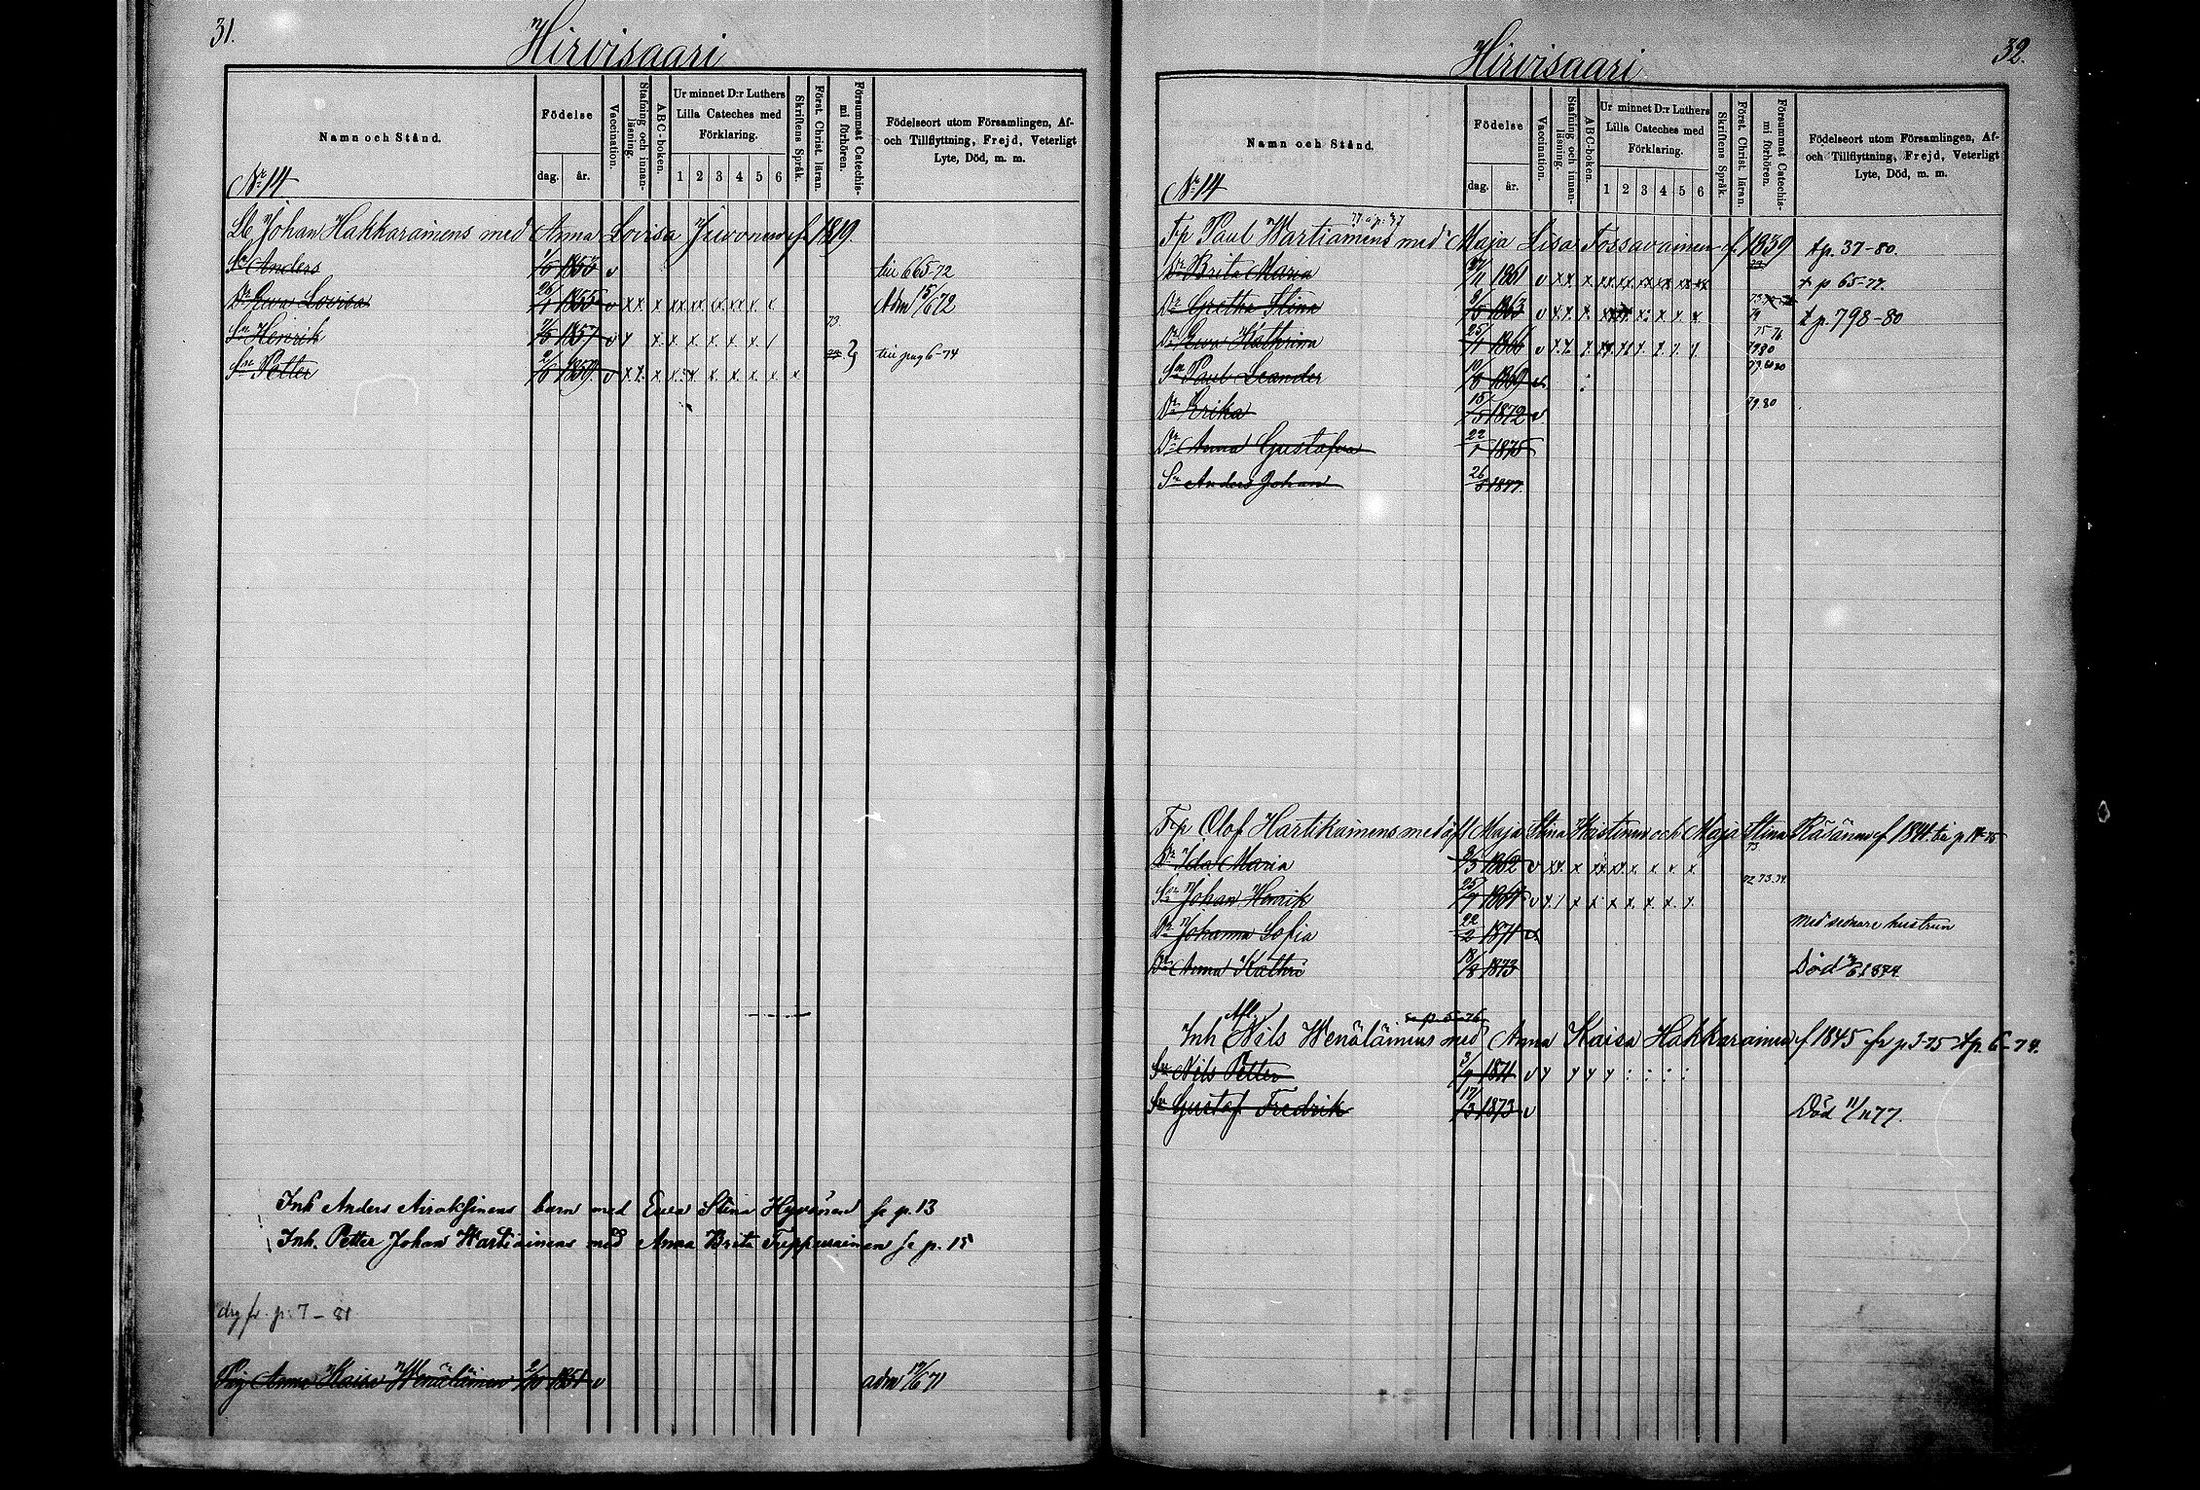 31.
Hirvisaari
Namn och Stånd.
Födelse
dag. år.
Vaccination.
Stafning och innan-läsning.
ABC-boken.
Ur minnet D:r Luthers Lilla Cateches med Förklaring.
1 2 3 4 5 6
Skriftens Språk.
Först. Christ. läran.
Försummat Catechis-mi förhören.
Födelseort utom Församlingen, Af-
och Tillflyttning, Frejd, Veterligt
Lyte, Död, m. m.
Nr 14
Johan Hakkarainens med Anna Lovisa f. 1819.
Sn Anders 1853 v till 665-72
Dr Ewa Lovisa 26/1 1855 v x x x xx x x x x x Adm 15/6 72
Sn Henrik 1857 v 73
Sn Petter 1859 v till pag 6-74
Inh Anders Airaksinens barn med Ewa Stina Hyvönen se p. 13
Inh. Petter Johan Wartiainens med Anna Brita Tepperainen se p. 15
fr. p. 7-81
Pig Anna Kaisa Wenäläinen 2/10 1851 v adm 71
32.
Hirvisaari
Namn och Stånd.
Födelse
dag. år.
Vaccination.
Stafning och innan-läsning.
ABC-boken.
Ur minnet D:r Luthers Lilla Cateches med Förklaring.
1 2 3 4 5 6
Skriftens Språk.
Först. Christ. läran.
Försummat Catechis-mi förhören.
Födelseort utom Församlingen, Af-
och Tillflyttning, Frejd, Veterligt
Lyte, Död, m. m.
Nr 14
Fp Paul Wartiainens med Maja Lisa Tossavainen f. 1839 tp. 37-80.
Dr Brita Maria 27/11 1861 v t p 65-77.
Dr Gretha Stina 1863 v t p. 798-80
Dr Ewa Kathrina 25/1 1866 v
Sn Paul Leander 1869 v
Dr Erika 15/5 1872 v 79.80
Dr Anna Gustafva 22 1875
Sn Anders Johan 26/5 1877.
Fp Olof Hartikainens med afl Maja Stina Hastinen och Maja Stina Räsänen f 1844. p 14-75
Dr Ida Maria 1862 v 73
Sn Johan Henrik 25/7 1864 v 72 73.74.
Dr Johanna Sofia 22/2 1871 v Med sednare hustrun
Dr Anna Kathri 18/8 1873 Död 1874.
se p. 5-76
Inh Afl Nils Wenäläinens med Anna Kaisa Hakkarainen f 1845 fr p 3-75 tp. 6-74.
Sn Nils Petter 3/9 1871 v
Sn Gustaf Fredrik 17/3 1873 v Död 11/11 77.